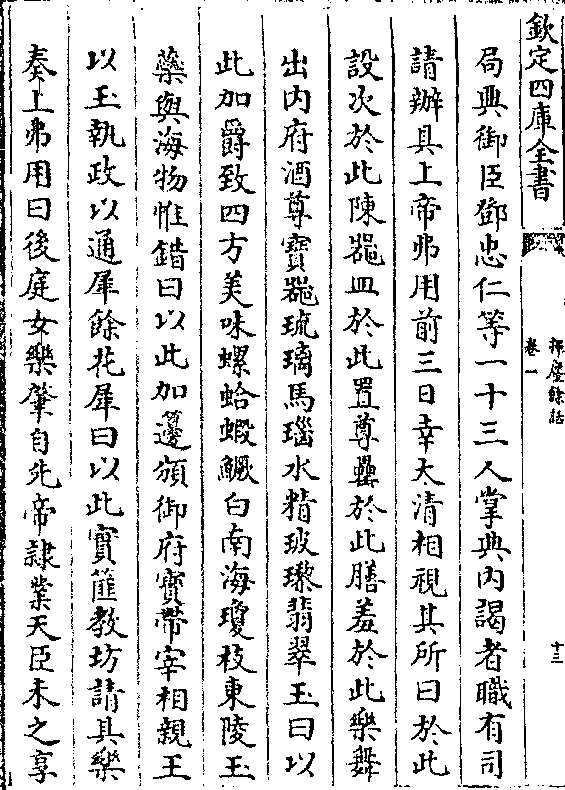 欽定四庫全書
揮麈餘話
卷一
十三
局典御臣鄧忠仁等一十三人掌典内謁者職有司
請辦具上帝弗用前三日幸太清相視其所曰於此
設次於此陳器皿於此置尊罍於此膳羞於此樂舞
出内府酒尊寶器琉璃馬瑙水精玻瓈翡翠玉曰以
此加爵致四方美味螺蛤蝦鱖白南海瓊枝東陵玉
蘂與海物惟錯曰以此加籩頒御府寶帶宰相親王
以玉執政以通犀餘花犀曰以此實篚教坊請具樂
奏上弗用曰後庭女樂肇自先帝隷業天臣未之享